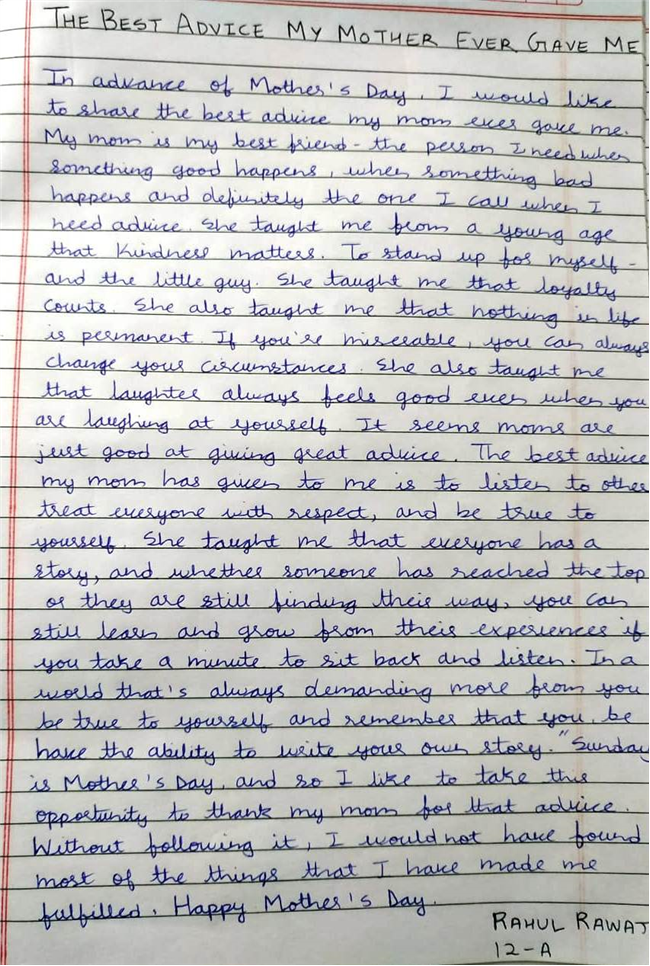 THE BEST ADVICE MY MOTHER EVER GAVE ME
In advance of Mother's Day, I would like
to share the best advice my mom ever gave me.
My mom is my best friend - the person I need when
something good happens, when something bad
happens and definitely the one I call when I
need advice. She taught me from a young age
that Kindness matters. To stand up for myself -
and the little guy. She taught me that loyalty
counts. She also taught me that nothing in life
is permanent. If you're miserable, you can always
change your circumstances. She also taught me
that laughter always feels good even when you
are laughing at yourself. It seems moms are
just good at giving great advice. The best advice
my mom has given to me is to listen to other
treat everyone with respect, and be true to
yourself. She taught me that everyone has a
story, and whether someone has reached the top
or they are still finding their way, you can
still learn and grow from their experiences if
you take a minute to sit back and listen. In a
world that's always demanding more from you
be true to yourself and remember that you be
have the ability to write your own story." Sunday
is Mother's Day, and so I like to take this
opportunity to thank my mom for that advice.
Without following it, I would not have found
most of the things that I have made me
fulfilled. Happy Mother's Day.
RAHUL RAWAT
12-A